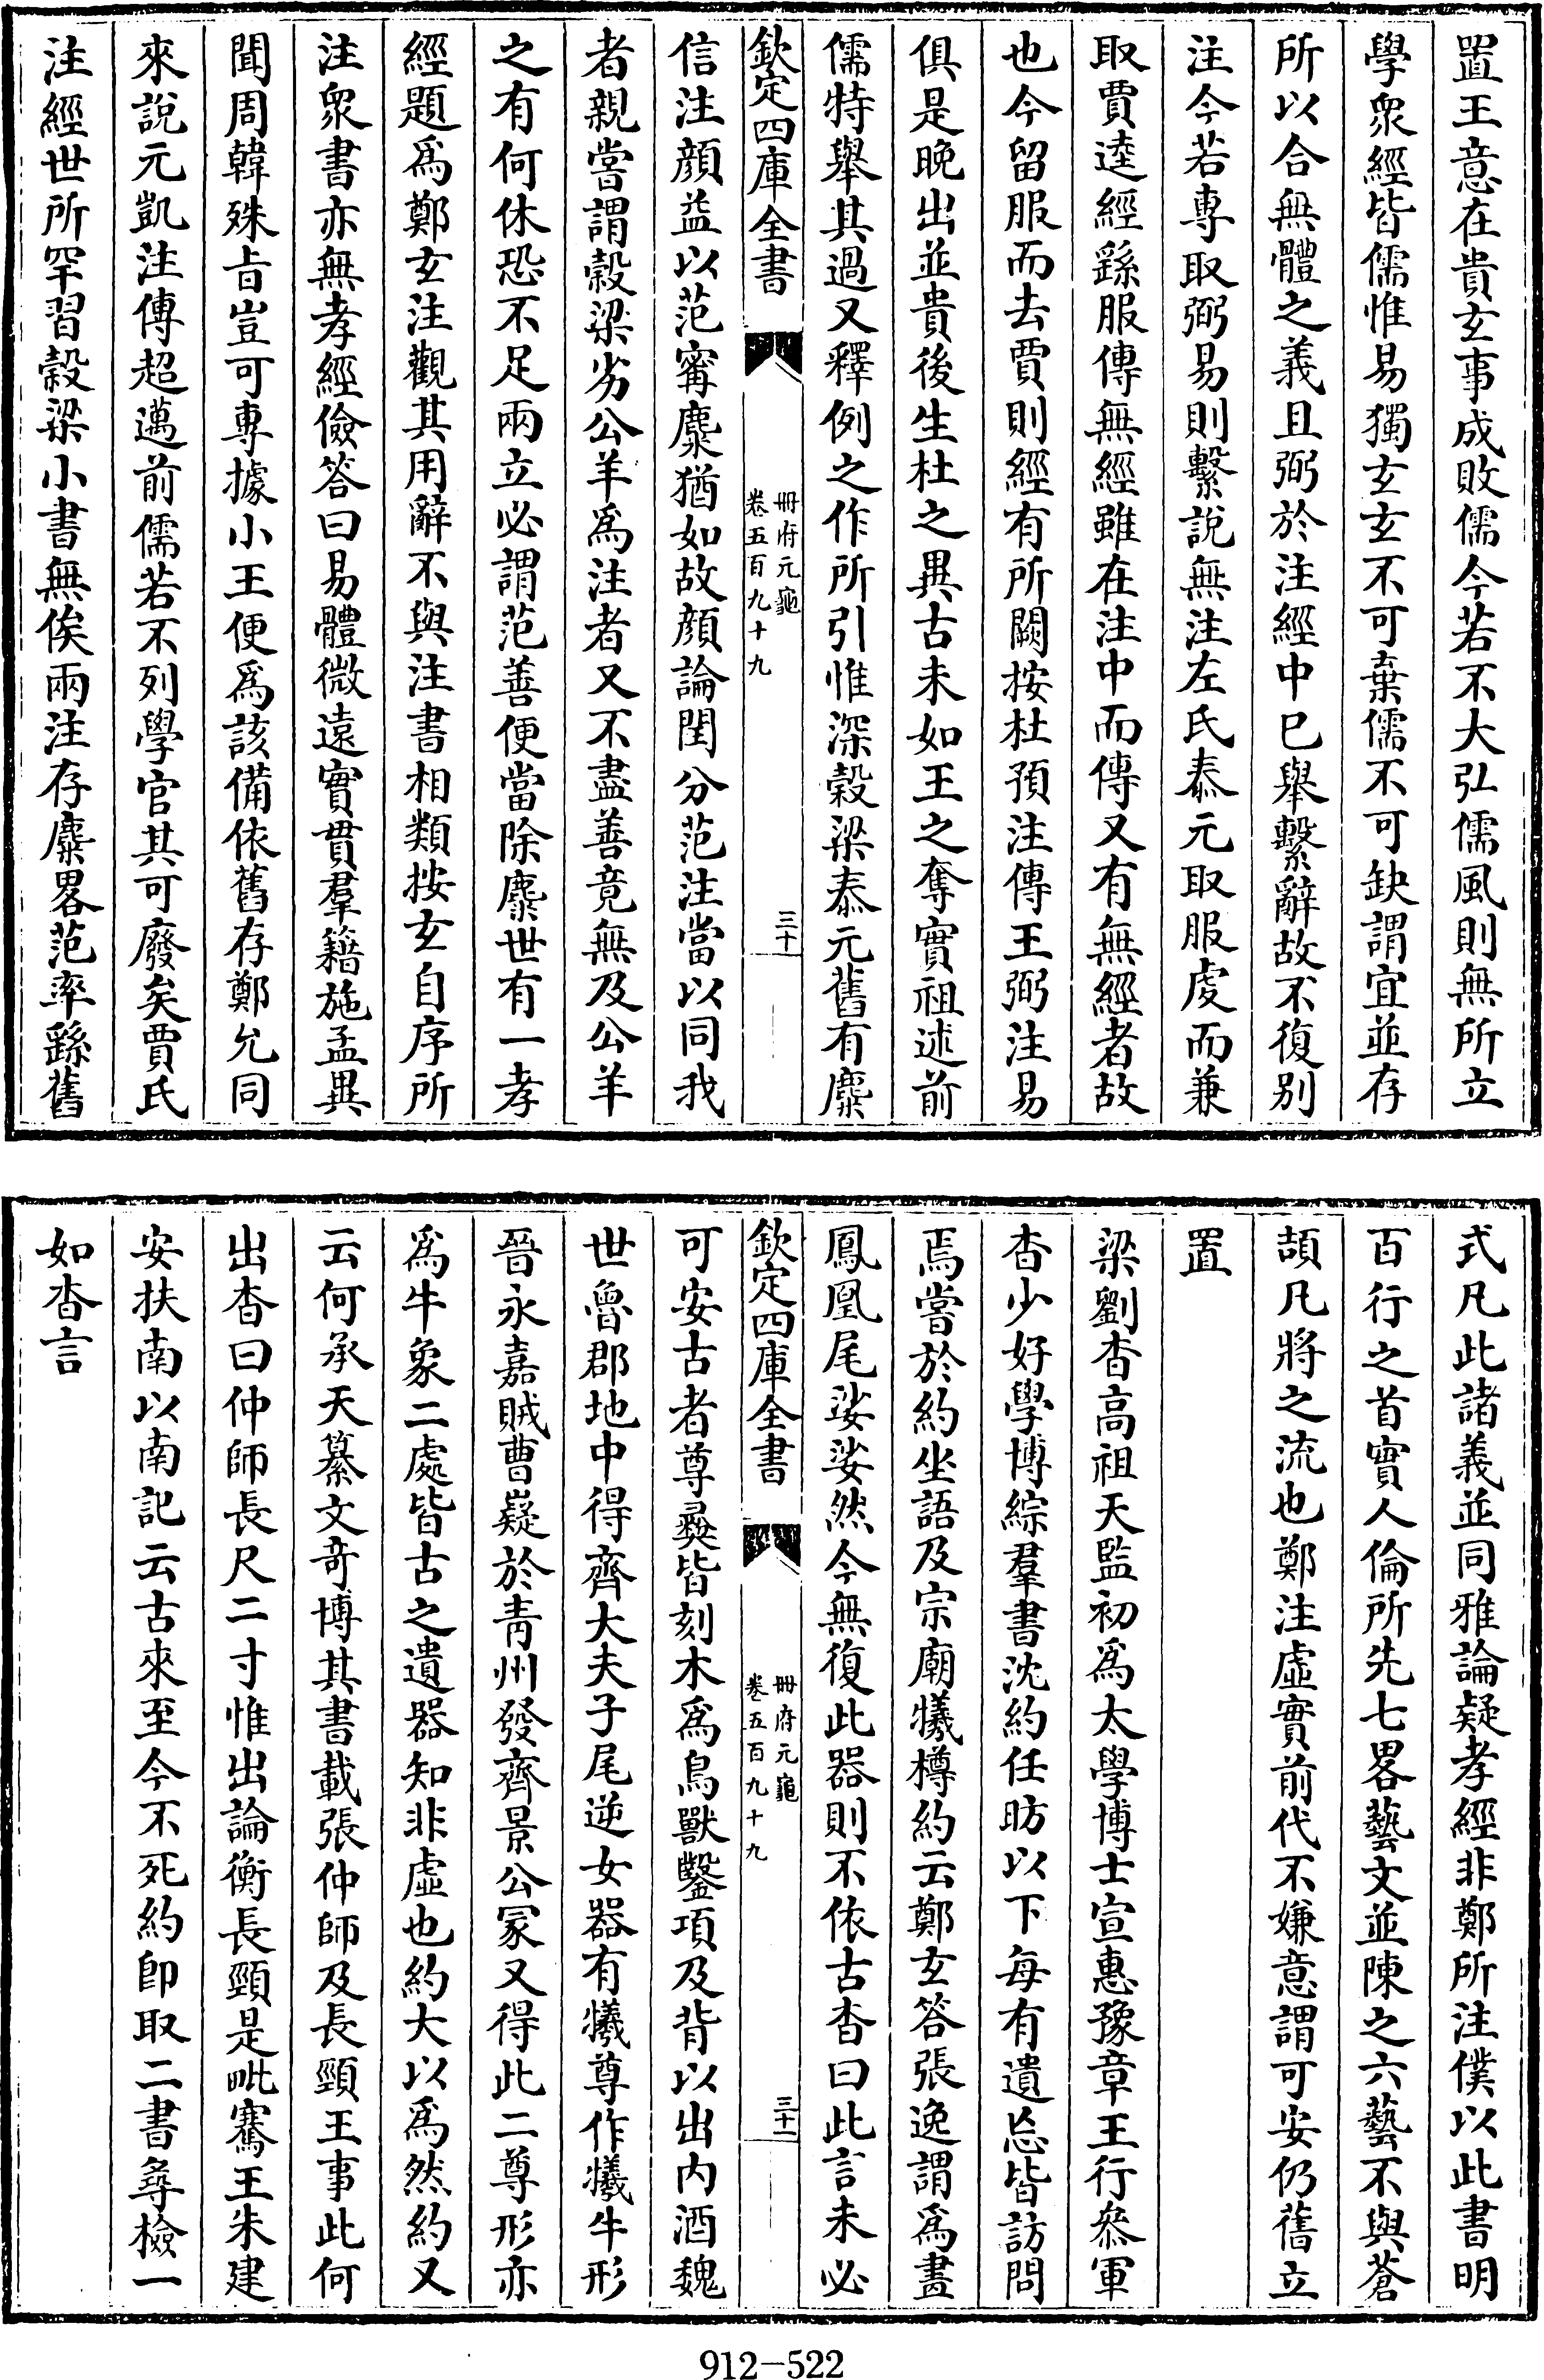 置王意在貴玄事成敗儒今若不大弘儒風則無所立
學衆經皆儒惟易獨玄玄不可棄儒不可缺謂宜並存
所以合無體之義且弼於注經中已舉繫辭故不復别
注今若專取弼易則繫說無注左氏泰元取服虔而兼
取賈逵經繇服傳無經雖在注中而傳又有無經者故
也今留服而去賈則經有所闕按杜預注傳王弼注易
俱是晚出並貴後生杜之異古未如王之奪實祖述前
儒特舉其過又釋例之作所引惟深穀梁泰元舊有麋
欽定四庫全書
冊府元龜
卷五百九十九
三十
信注顔益以范甯麋猶如故顔論閏分范注當以同我
者親嘗謂穀梁劣公羊為注者又不盡善竟無及公羊
之有何休恐不足兩立必謂范善便當除麋世有一孝
經題為鄭玄注觀其用辭不與注書相類按玄自序所
注衆書亦無孝經儉答曰易體微遠實貫羣籍施孟異
聞周韓殊旨豈可專據小王便為該備依舊存鄭允同
來說元凱注傳超邁前儒若不列學官其可廢矣賈氏
注經世所罕習穀梁小書無俟兩注存麋畧范率繇舊
式凡此諸義並同雅論疑孝經非鄭所注僕以此書明
百行之首實人倫所先七畧藝文並陳之六藝不與蒼
頡凡將之流也鄭注虛實前代不嫌意謂可安仍舊立
置
梁劉杳高祖天監初為太學博士宣惠豫章王行參軍
杳少好學博綜羣書沈約任昉以下每有遺忘皆訪問
焉嘗於約坐語及宗廟犧樽約云鄭玄答張逸謂為畫
鳳凰尾娑娑然今無復此器則不依古杳曰此言未必
欽定四庫全書
冊府元龜
卷五百九十九
三十一
可安古者尊彝皆刻木為鳥獸鑿項及背以出内酒魏
世魯郡地中得齊大夫子尾送女器有犧尊作犧牛形
晉永嘉賊曹嶷於青州發齊景公冢又得此二尊形亦
為牛象二處皆古之遺器知非虛也約大以為然約又
云何承天纂文奇博其書載張仲師及長頸王事此何
出杳曰仲師長尺二寸惟出論衡長頸是毗騫王朱建
安扶南以南記云古來至今不死約即取二書尋檢一
如杳言
912-522